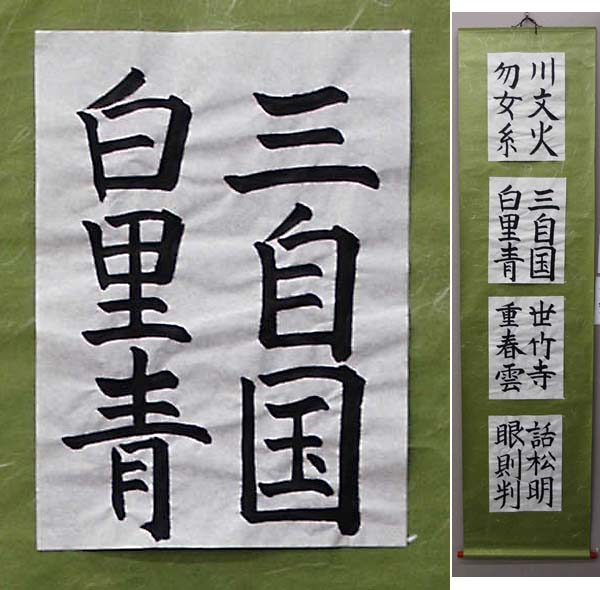 三自国
白里青
川文火
勿女糸
三自国
白里青
世竹寺
重春雲
話松明
眼則判